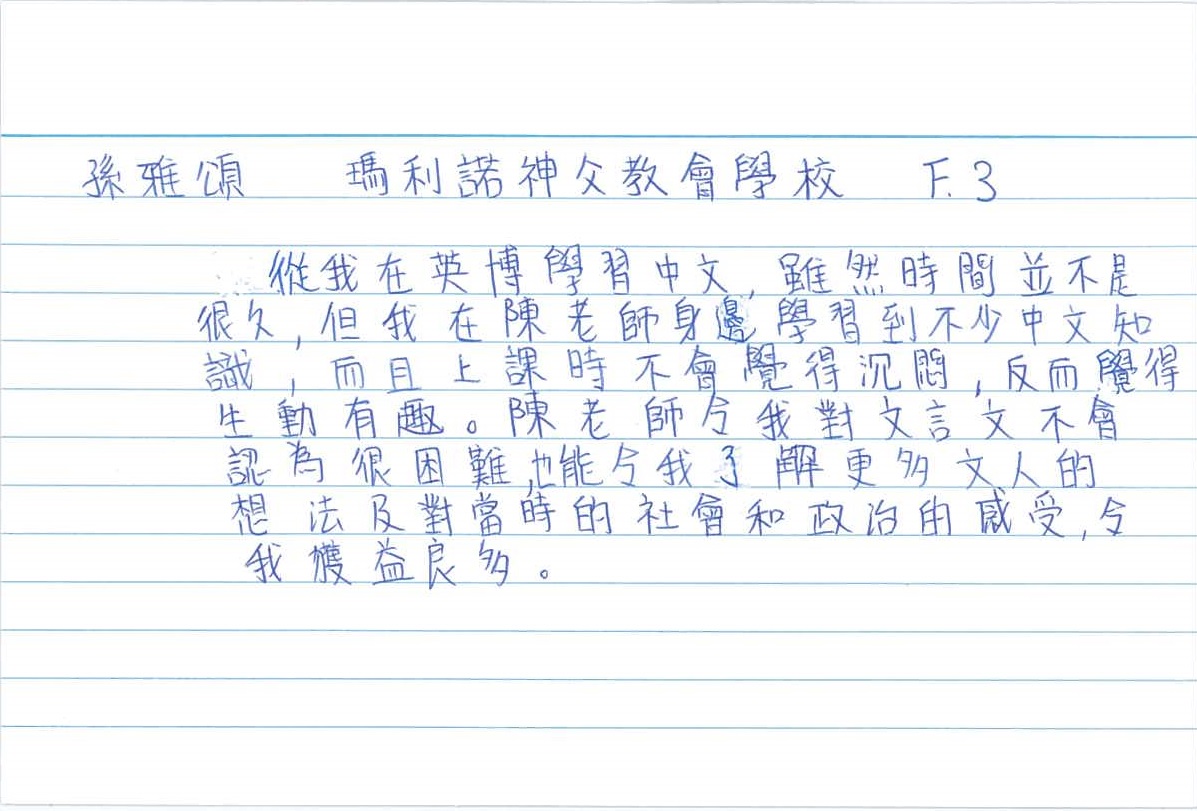 孫雅頌 瑪利諾神父教會學校 F.3
從我在英博學習中文,雖然時間並不是
很久,但我在陳老師身邊學習到不少中文知
識,而且上課時不會覺得沉悶,反而覺得
生動有趣。陳老師令我對文言文不會
認為很困難,也能令我了解更多文人的
想法及對當時的社會和政治的感受,令
我獲益良多。